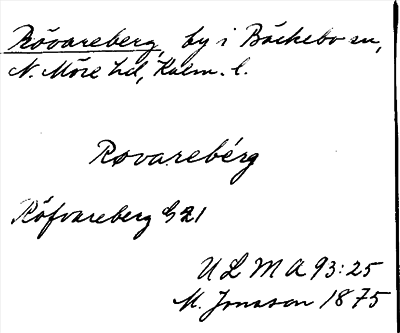 Rövareberg, by i Bäckebo sn,
N. Möre hd, Kalm. l.
Rovarebérg
Röfvareberg G 21
ULMA 93:25
M. Jonsson 1875